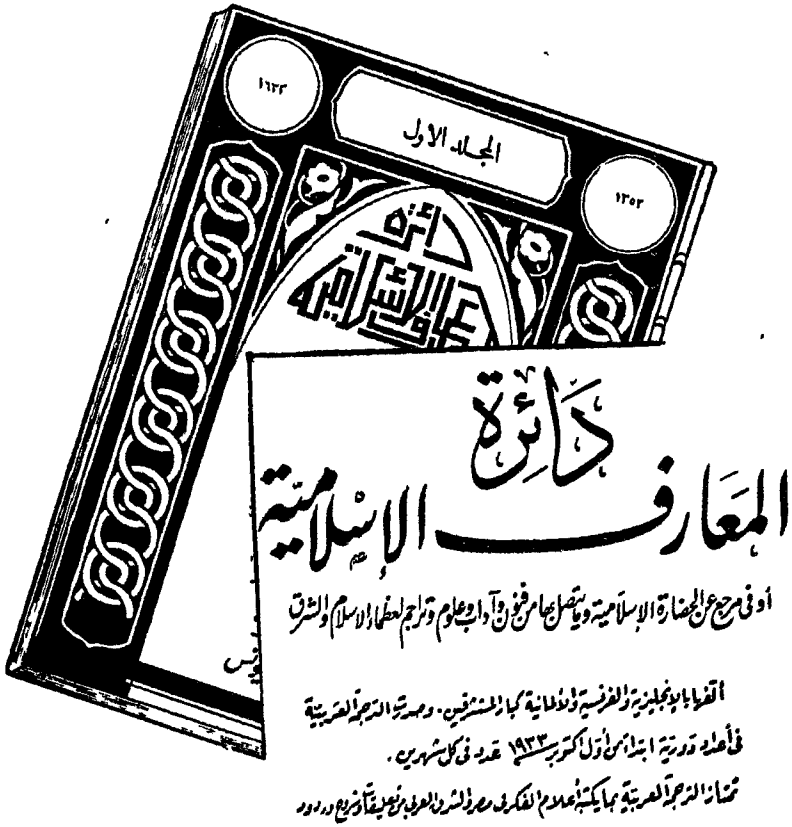 ١٦٣٣
المجلد الاول
١٣٥٢
دائرة
المعارف الإسلامية
دَائِرة
المعَارف الإسْلاميّة
أوفى مرجع عن الحضارة الإسلامية وما يتصل بها من فنون وآداب وعلوم وتراجم لعظماء الإسلام والشرق
ألفها بالإنجليزية والفرنسية والألمانية كبار المستشرقين . وصدرت الترجمة العربية
فى أعداد دورية ابتداءً من أول أكتوبر ١٩٣٣ عدد فى كل شهرين .
تمتاز الترجمة العربية بما يكتبه أعلام الفكر فى مصر والشرق العربى من تعليقات وشروح وردود